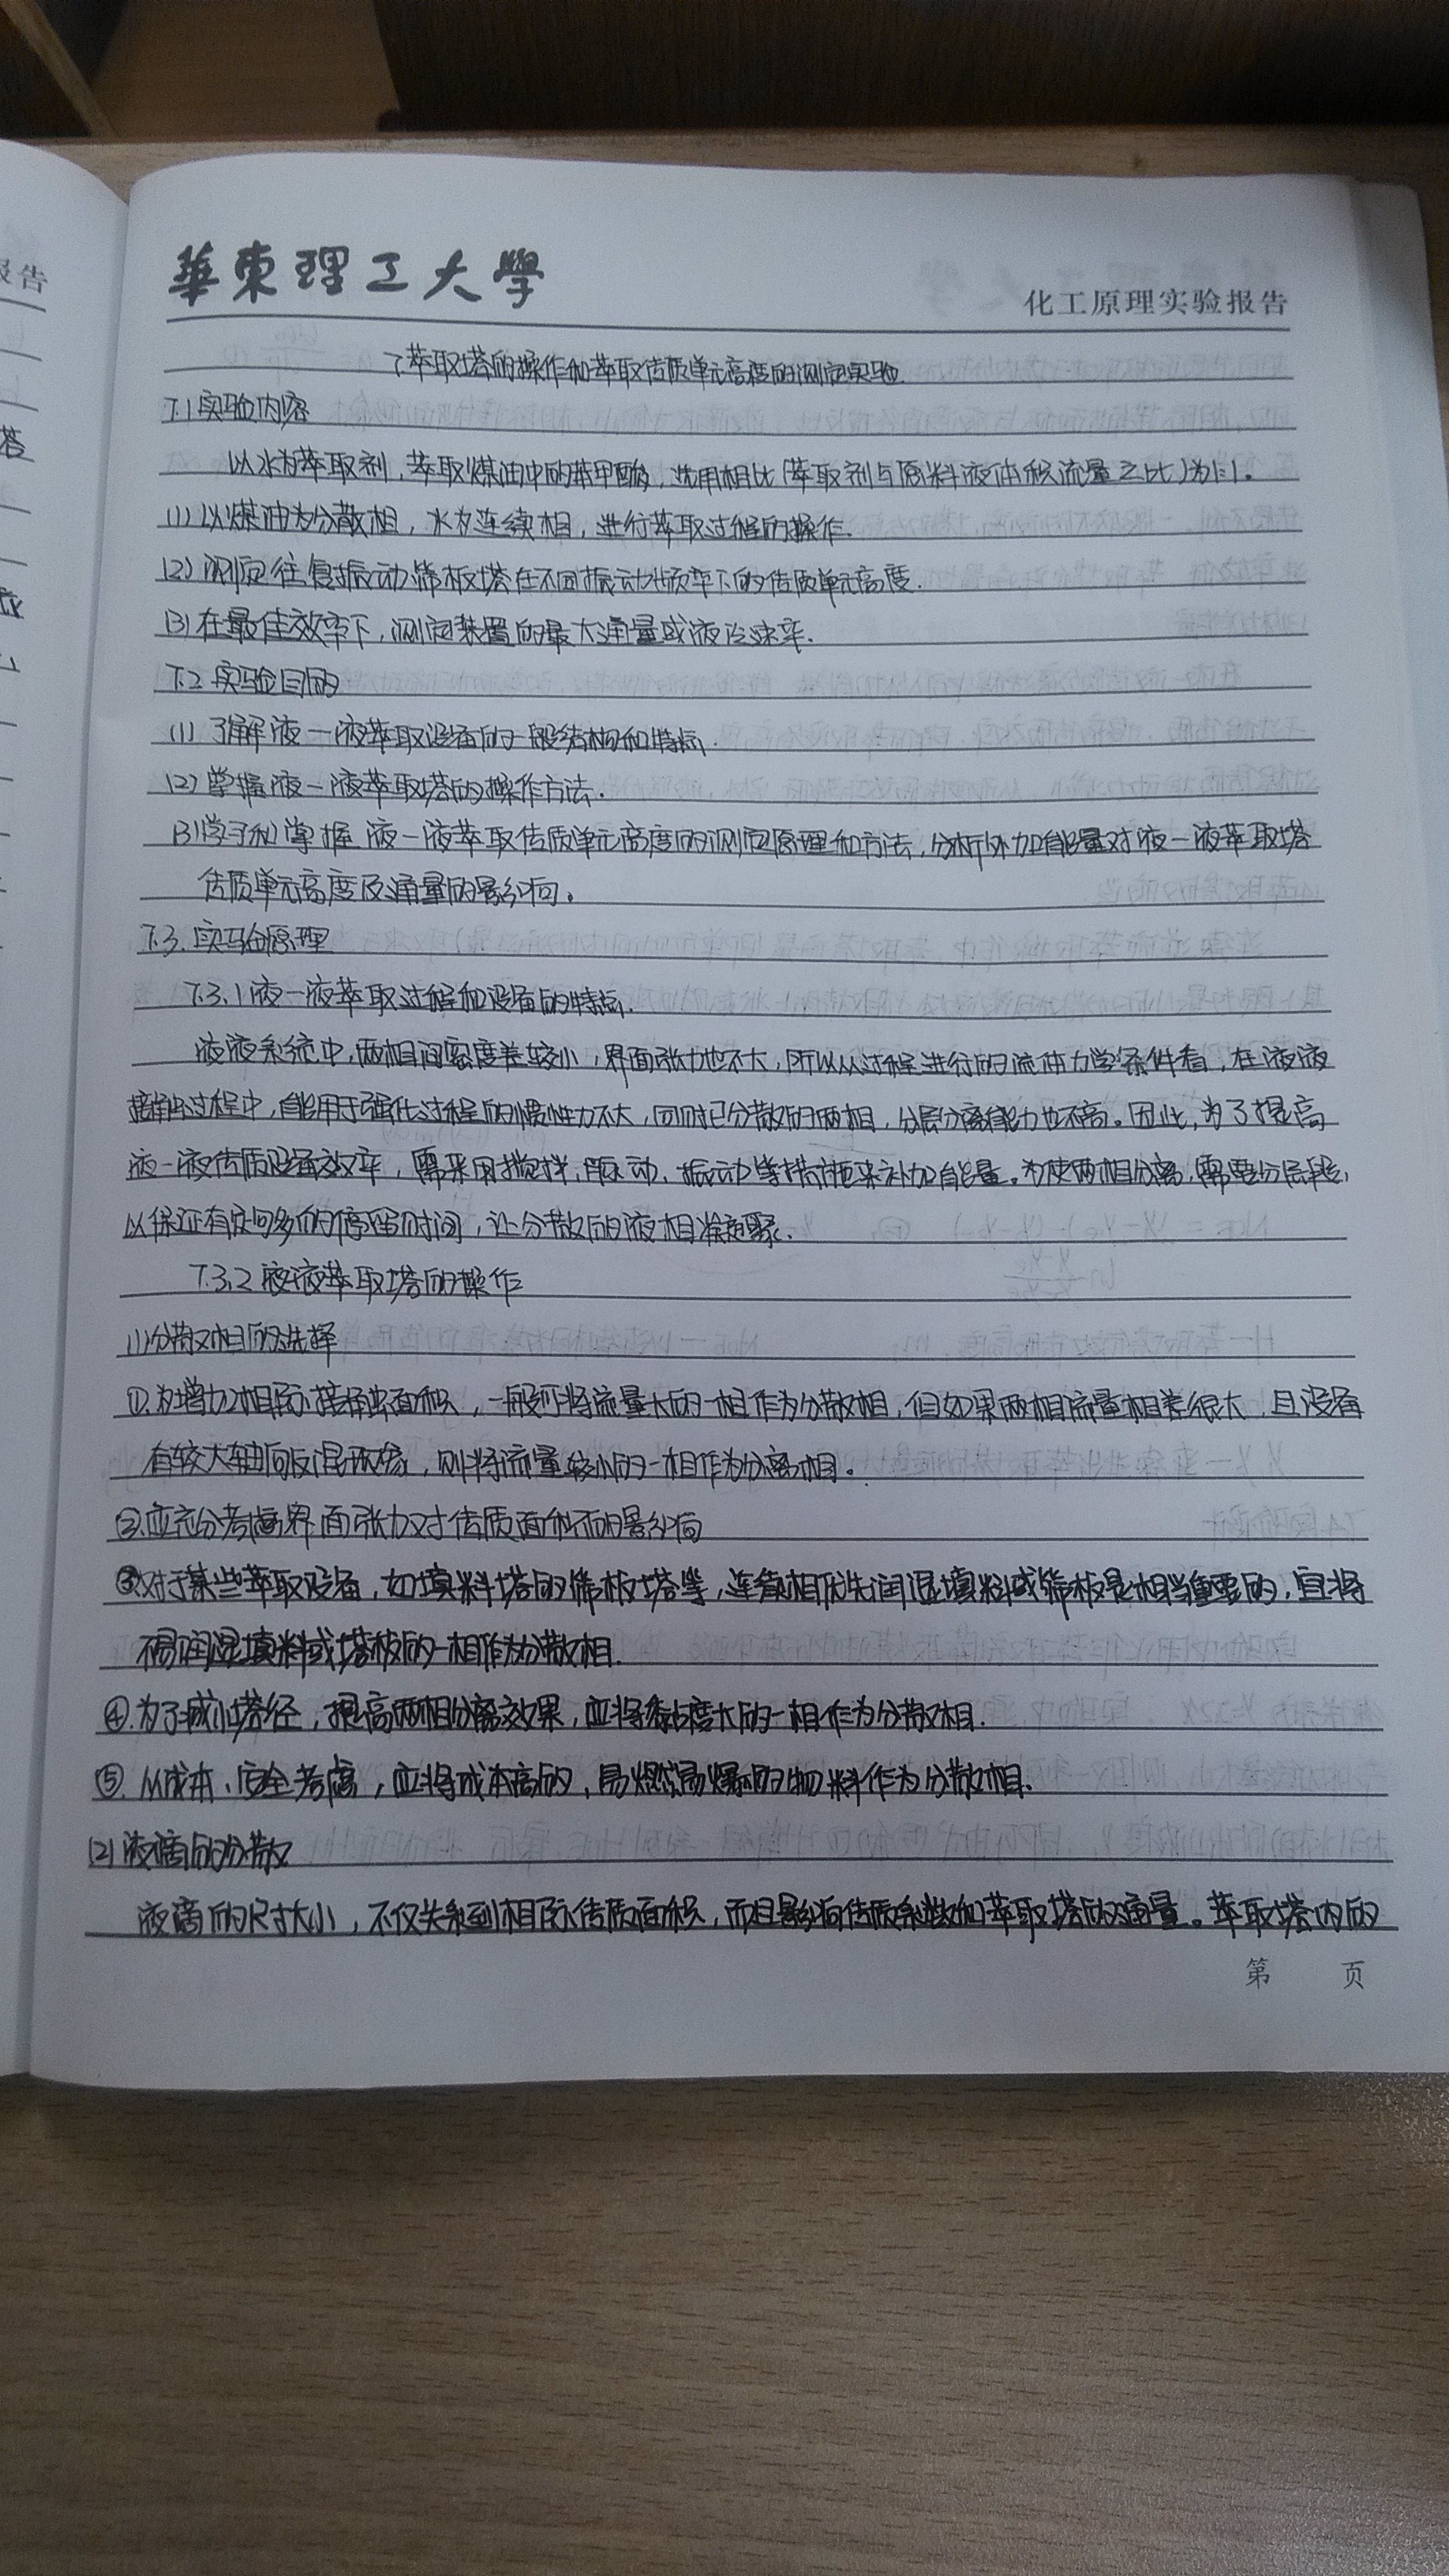 華東理工大學
化工原理实验报告
7 萃取塔的操作和萃取传质单元高度的测定实验
7.1 实验内容
以水为萃取剂，萃取煤油中的苯甲酸，选用相比（萃取剂与原料液体积流量之比）为1:1。
(1) 以煤油为分散相，水为连续相，进行萃取过程的操作.
(2) 测定往复振动筛板塔在不同振动频率下的传质单元高度.
(3) 在最佳效率下，测定装置的最大通量或液泛速率.
7.2 实验目的
(1) 了解液一液萃取设备的一般结构和特点.
(2) 掌握液一液萃取塔的操作方法.
(3) 学习和掌握液一液萃取传质单元高度的测定原理和方法，分析外加能量对液一液萃取塔
传质单元高度及通量的影响。
7.3. 实验原理
7.3.1 液一液萃取过程和设备的特点.
液液系统中，两相间密度差较小，界面张力也不大，所以从过程进行的流体力学条件看，在液液
接触过程中，能用于强化过程的惯性力不大，同时已分散的两相，分层分离能力也不高。因此，为了提高
液一液传质设备效率，需采用搅拌，脉动，振动等措施来补加能量。为使两相分离，需要分层段，
以保证有足够多的停留时间，让分散的液相凝聚.
7.3.2 液液萃取塔的操作
(1) 分散相的选择
①. 为增加相际接触面积，一般可将流量大的一相作为分散相，但如果两相流量相差很大，且设备
有较大轴向反混现象，则将流量较小的一相作为分离相。
②. 应充分考虑界面张力对传质面积的影响
③. 对于某些萃取设备，如填料塔的筛板塔等，连续相优先润湿填料或筛板是相当重要的，宜将
不易润湿填料或塔板的一相作为分散相.
④. 为了减小塔径，提高两相分离效果，应将黏度大的一相作为分散相.
⑤. 从成本、安全考虑，应将成本高的，易燃易爆的物料作为分散相.
(2) 液滴的分散
液滴的尺寸大小，不仅关系到相际传质面积，而且影响传质系数和萃取塔的通量。萃取塔内的
第 页
报告
塔